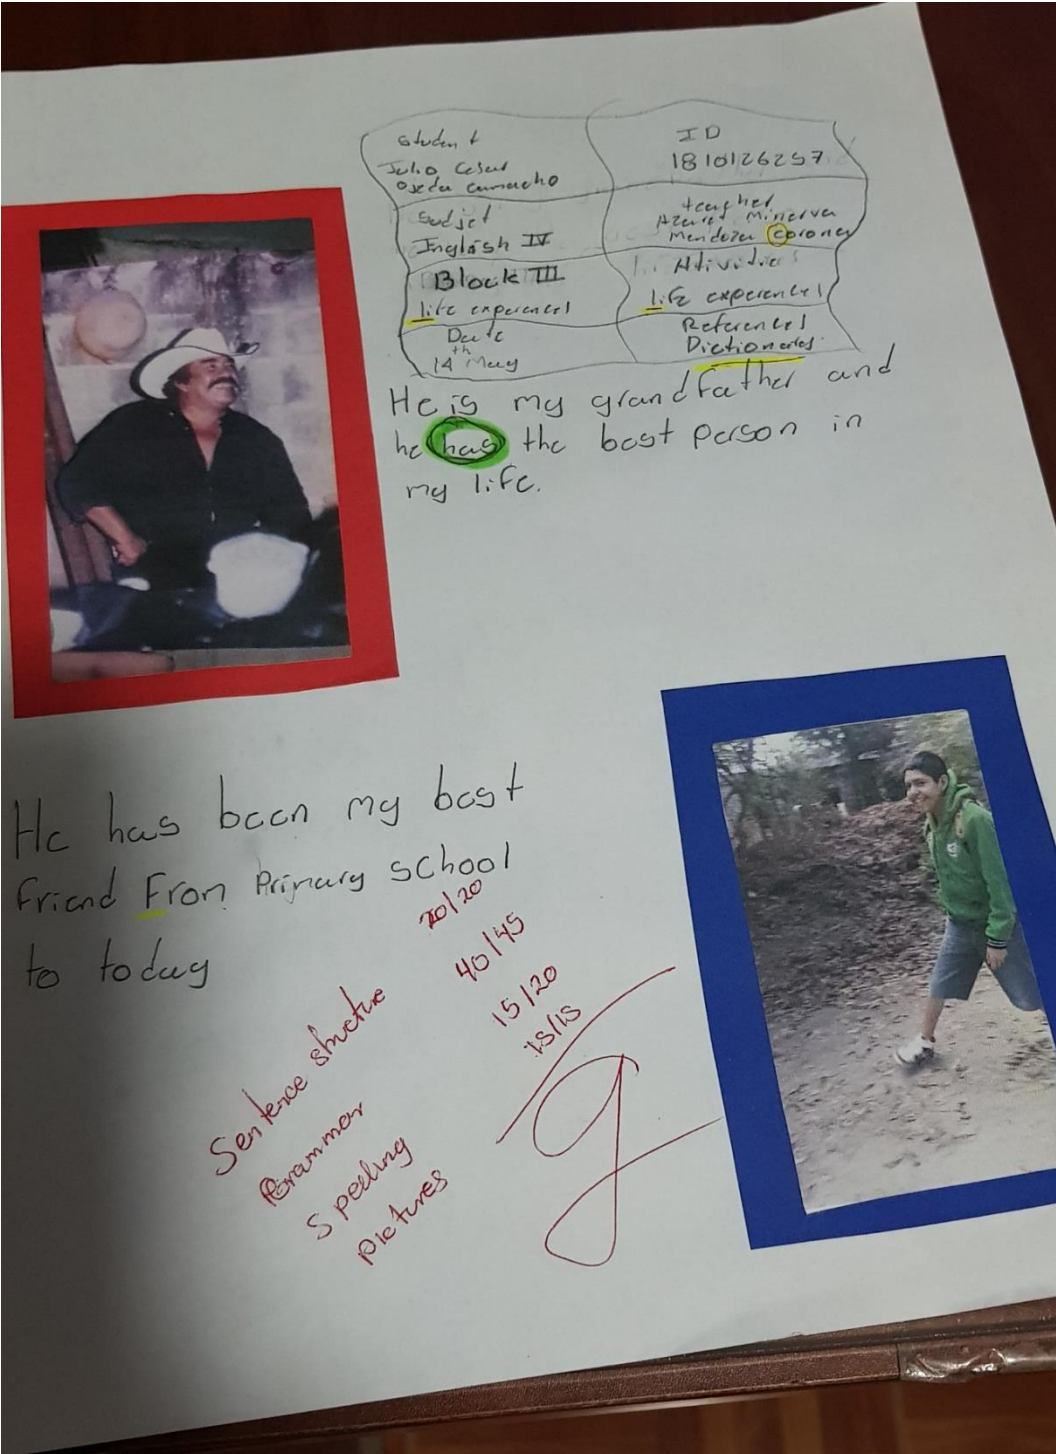 Student
Julio Cesar
Ojeda Camacho
ID
1810126257
Sudjet
Inglish IV
teacher
Azaret Minerva
Mendoza Corona
Block III
life experences
Atividies
life experences
Date
14th May
References
Dictionaries.
He is my grandfather and
he has the best person in
my life.
He has been my best
friend From Primary school
to today
Sentence structure 20/20
Grammar 40/45
Spelling 15/20
pictures 15/15
9